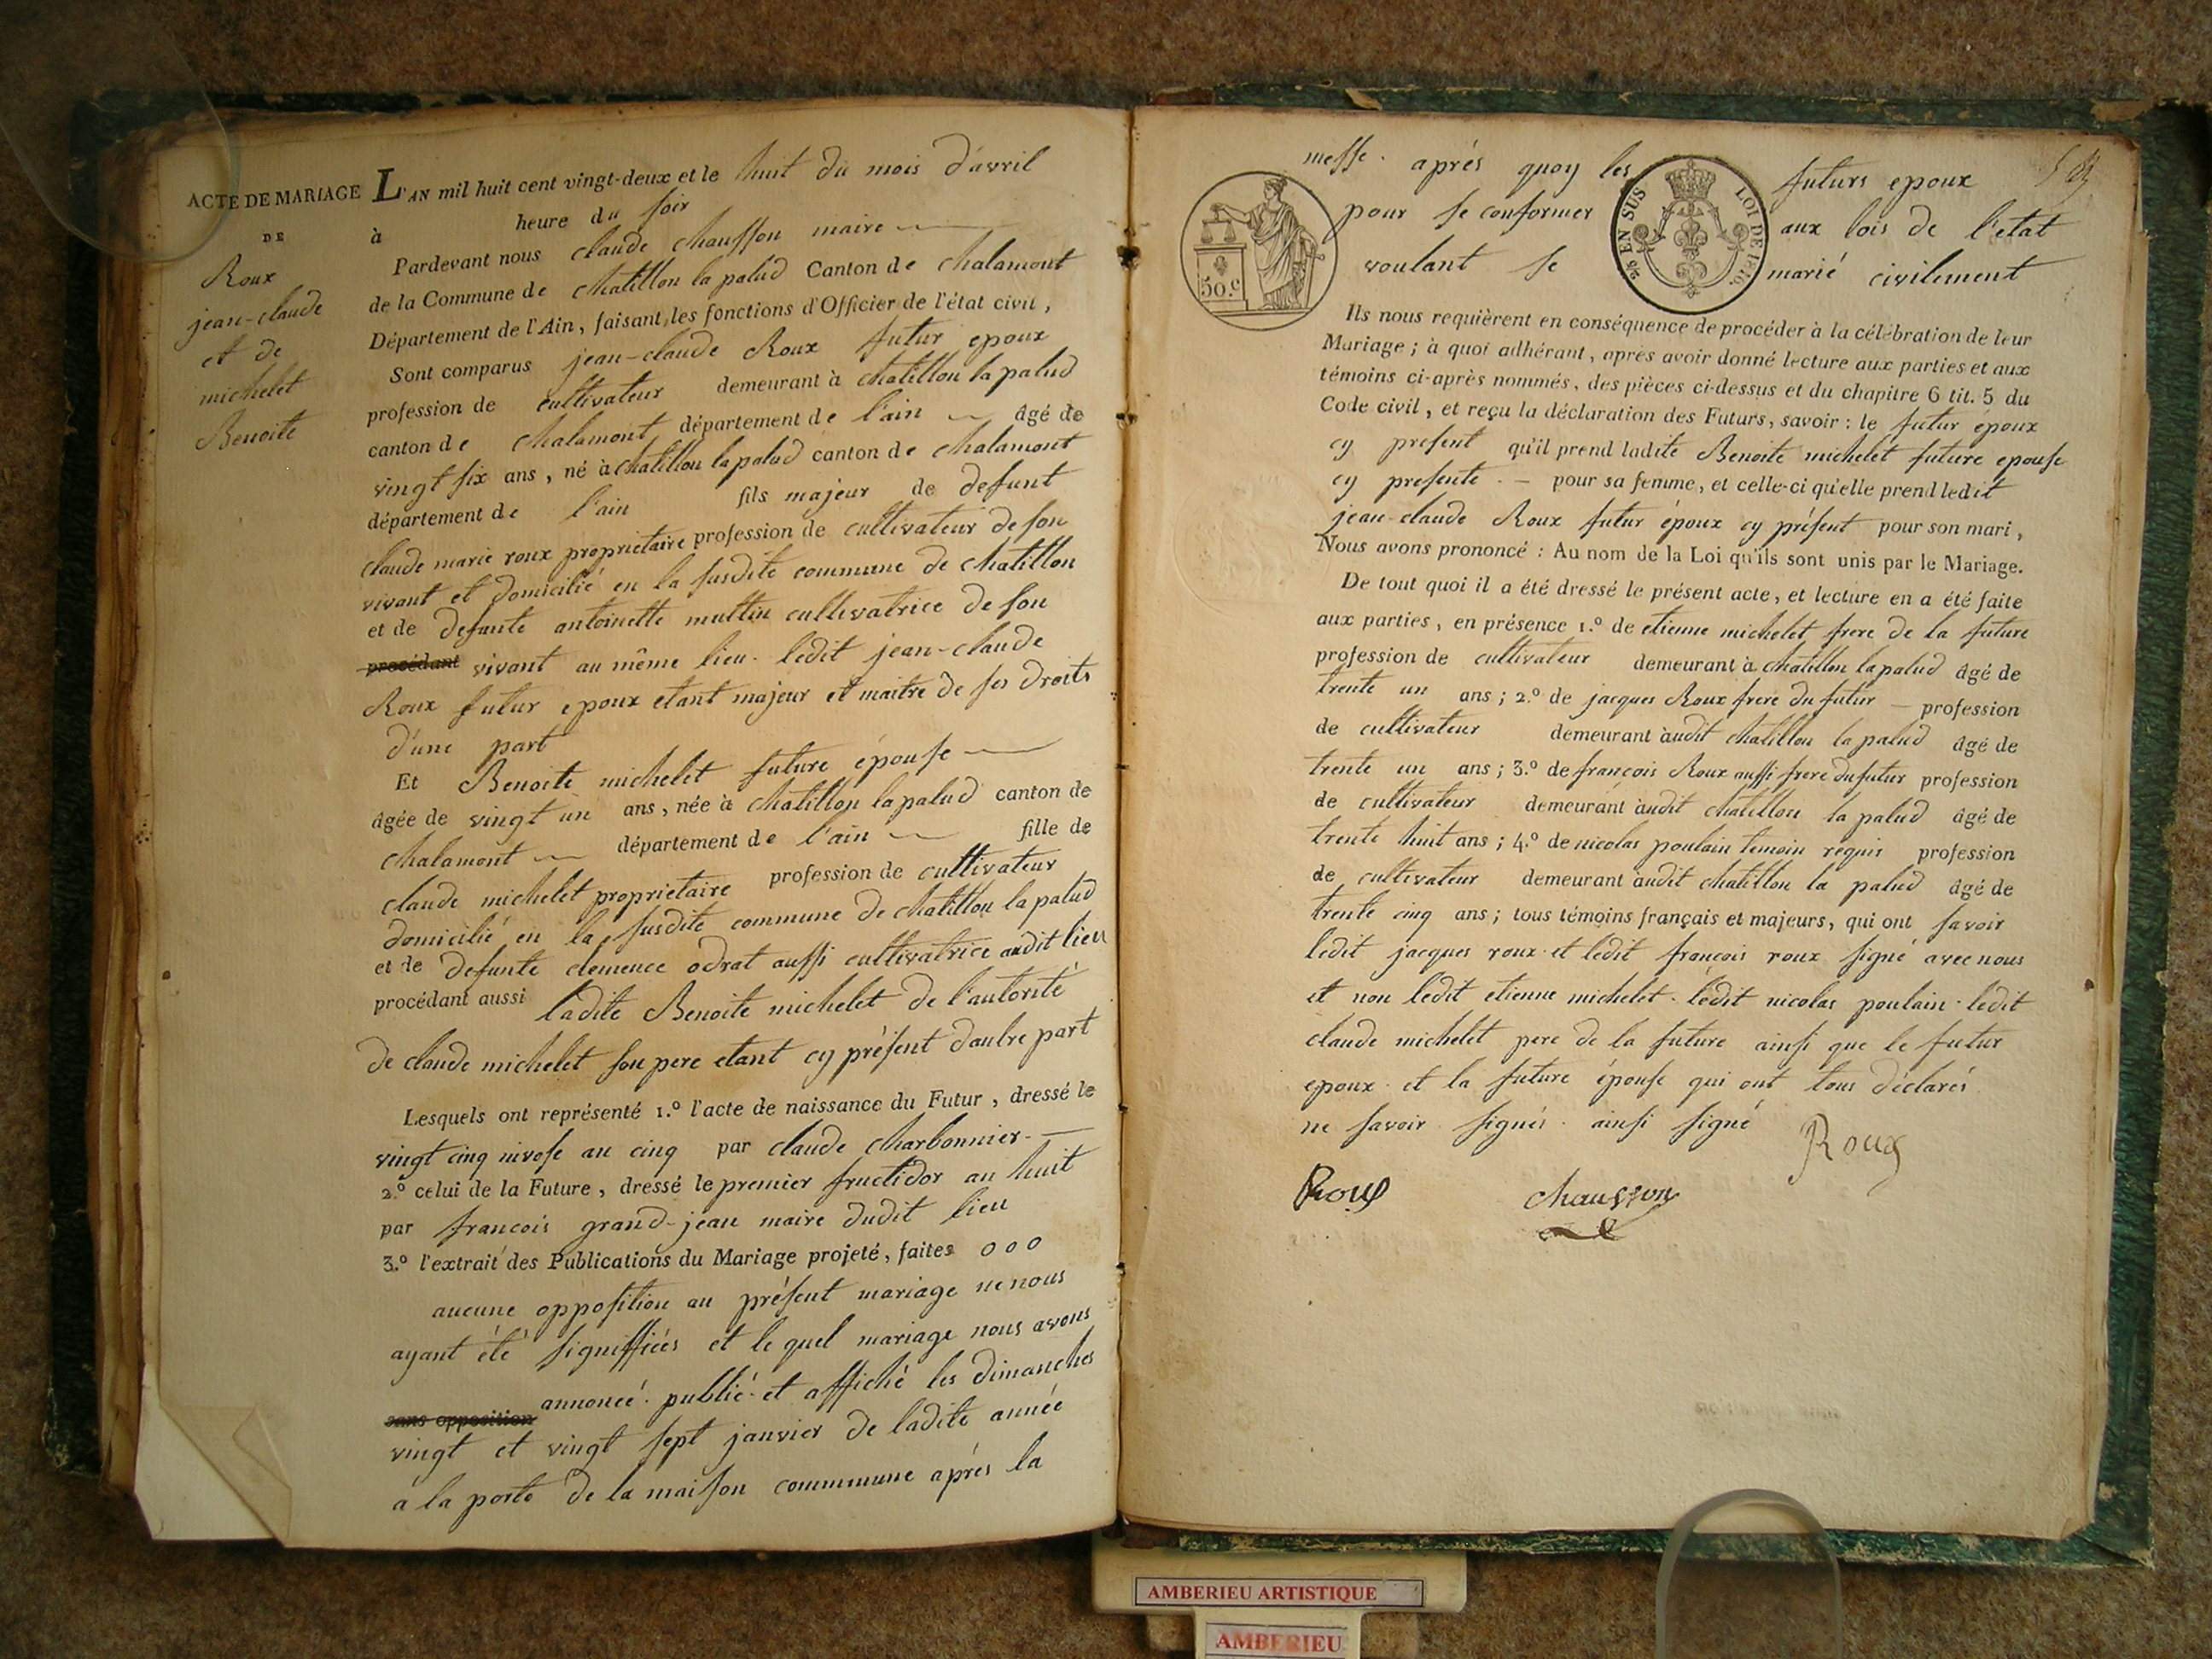 ACTE DE MARIAGE
DE
Roux
jean-claude
et de
michelet
Benoite
L'AN mil huit cent vingt-deux et le huit du mois d'avril
à heure du soir
Pardevant nous claude chausson maire
de la Commune de chatillon la palud Canton de chalamont
Département de l'Ain, faisant les fonctions d'Officier de l'état civil,
Sont comparus jean-claude Roux futur epoux
profession de cultivateur demeurant à chatillon la palud
canton de chalamont département de l'ain âgé de
vingt six ans, né à chatillon la palud canton de chalamont
département de l'ain fils majeur de defunt
claude marie roux proprietaire profession de cultivateur de son
vivant et domicilié en la susdite commune de chatillon
et de defunte antoinette muttin cultivatrice de son
procédant vivant au même lieu. ledit jean-claude
Roux futur epoux etant majeur et maitre de ses droits
d'une part
Et Benoite michelet future épouse
âgée de vingt un ans, née à chatillon la palud canton de
chalamont département de l'ain fille de
claude michelet proprietaire profession de cultivateur
domicilié en la susdite commune de chatillon la palud
et de defunte clemence odrat aussi cultivatrice audit lieu
procédant aussi ladite Benoite michelet de l'autorité
de claude michelet son pere etant cy présent d'autre part
Lesquels ont représenté 1.° l'acte de naissance du Futur, dressé le
vingt cinq nivose an cinq par claude charbonnier.
2.° celui de la Future, dressé le premier fructidor an huit
par francois grand-jean maire dudit lieu
3.° l'extrait des Publications du Mariage projeté, faites o o o
aucune opposition au présent mariage ne nous
ayant été signiffiées et le quel mariage nous avons
sans opposition annoncé. publié. et affiché les dimanches
vingt et vingt sept janvier de ladite année
a la porte de la maison commune aprés la
messe. aprés quoy les futurs epoux
pour se conformer aux lois de l'etat
voulant se marié civilement
50.c
2/5 EN SUS
LOI DE 1816.
Ils nous requièrent en conséquence de procéder à la célébration de leur
Mariage; à quoi adhérant, après avoir donné lecture aux parties et aux
témoins ci-après nommés, des pièces ci-dessus et du chapitre 6 tit. 5 du
Code civil, et reçu la déclaration des Futurs, savoir: le futur époux
cy present qu'il prend ladite Benoite michelet future epouse
cy presente. — pour sa femme, et celle-ci qu'elle prend ledit
jean-claude Roux futur époux cy présent pour son mari,
Nous avons prononcé: Au nom de la Loi qu'ils sont unis par le Mariage.
De tout quoi il a été dressé le présent acte, et lecture en a été faite
aux parties, en présence 1.° de etienne michelet frere de la future
profession de cultivateur demeurant à chatillon la palud âgé de
trente un ans; 2.° de jacques Roux frere du futur — profession
de cultivateur demeurant audit chatillon la palud âgé de
trente un ans; 3.° de françois Roux aussi frere du futur profession
de cultivateur demeurant audit chatillon la palud âgé de
trente huit ans; 4.° de nicolas poulain temoin requis profession
de cultivateur demeurant audit chatillon la palud âgé de
trente cinq ans; tous témoins français et majeurs, qui ont savoir
ledit jacques roux. et ledit françois roux signé avec nous
et non ledit etienne michelet. ledit nicolas poulain. ledit
claude michelet pere de la future ainsi que le futur
epoux. et la future épouse qui ont tous déclarés
ne savoir signés. ainsi signé
Roux
Roux
chausson
AMBERIEU ARTISTIQUE
AMBERIEU